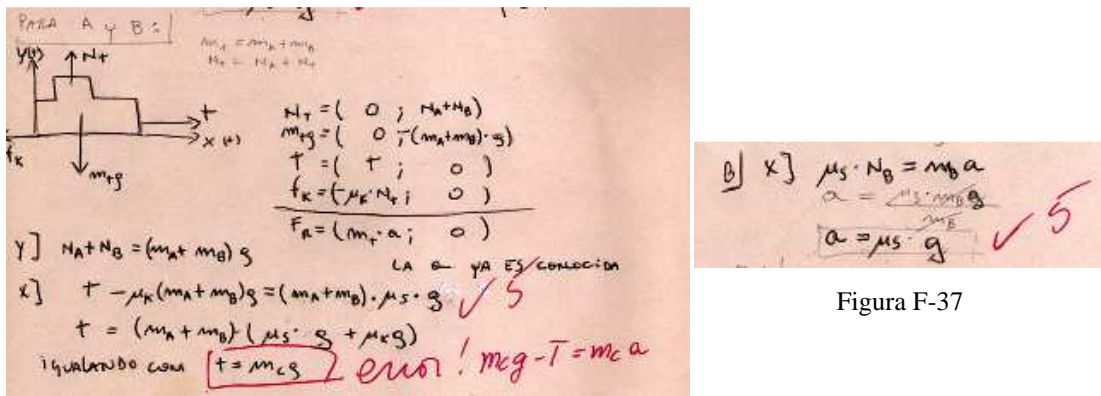 PARA A y B:
m_t = m_A + m_B
N_t = N_A + N_B
y(+)
N_t
t
x (+)
f_K
m_t g
N_T = ( 0 ; N_A+N_B)
m_t g = ( 0 ; -(m_A+m_B)·g)
T = ( T ; 0 )
f_K = (-μ_K·N_t ; 0 )
F_R = (m_t·a ; 0 )
y] N_A+N_B = (m_A+m_B) g
LA a YA ES CONOCIDA
x] T - μ_K(m_A+m_B)g = (m_A+m_B)·μ_S·g ✓ 5
t = (m_A+m_B)·(μ_S·g + μ_K g)
IGUALANDO CON t = m_C g error! m_C g - T = m_C a
B] x] μ_S·N_B = m_B a
a = μ_S·m_B g
m_B
a = μ_S·g ✓ 5
Figura F-37